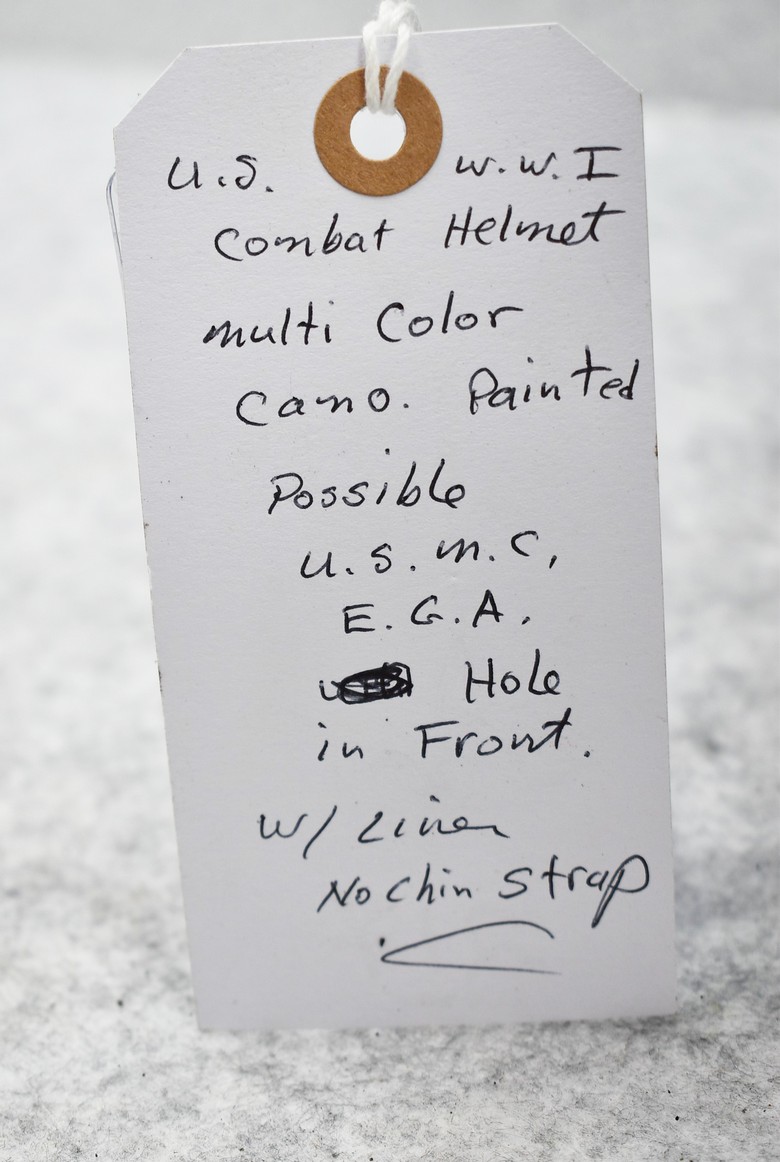 U.S. W.W.I
Combat Helmet
multi Color
Camo. Painted
Possible
U.S.M.C,
E.G.A.
Hole
in Front.
W/ Liner
No Chin Strap